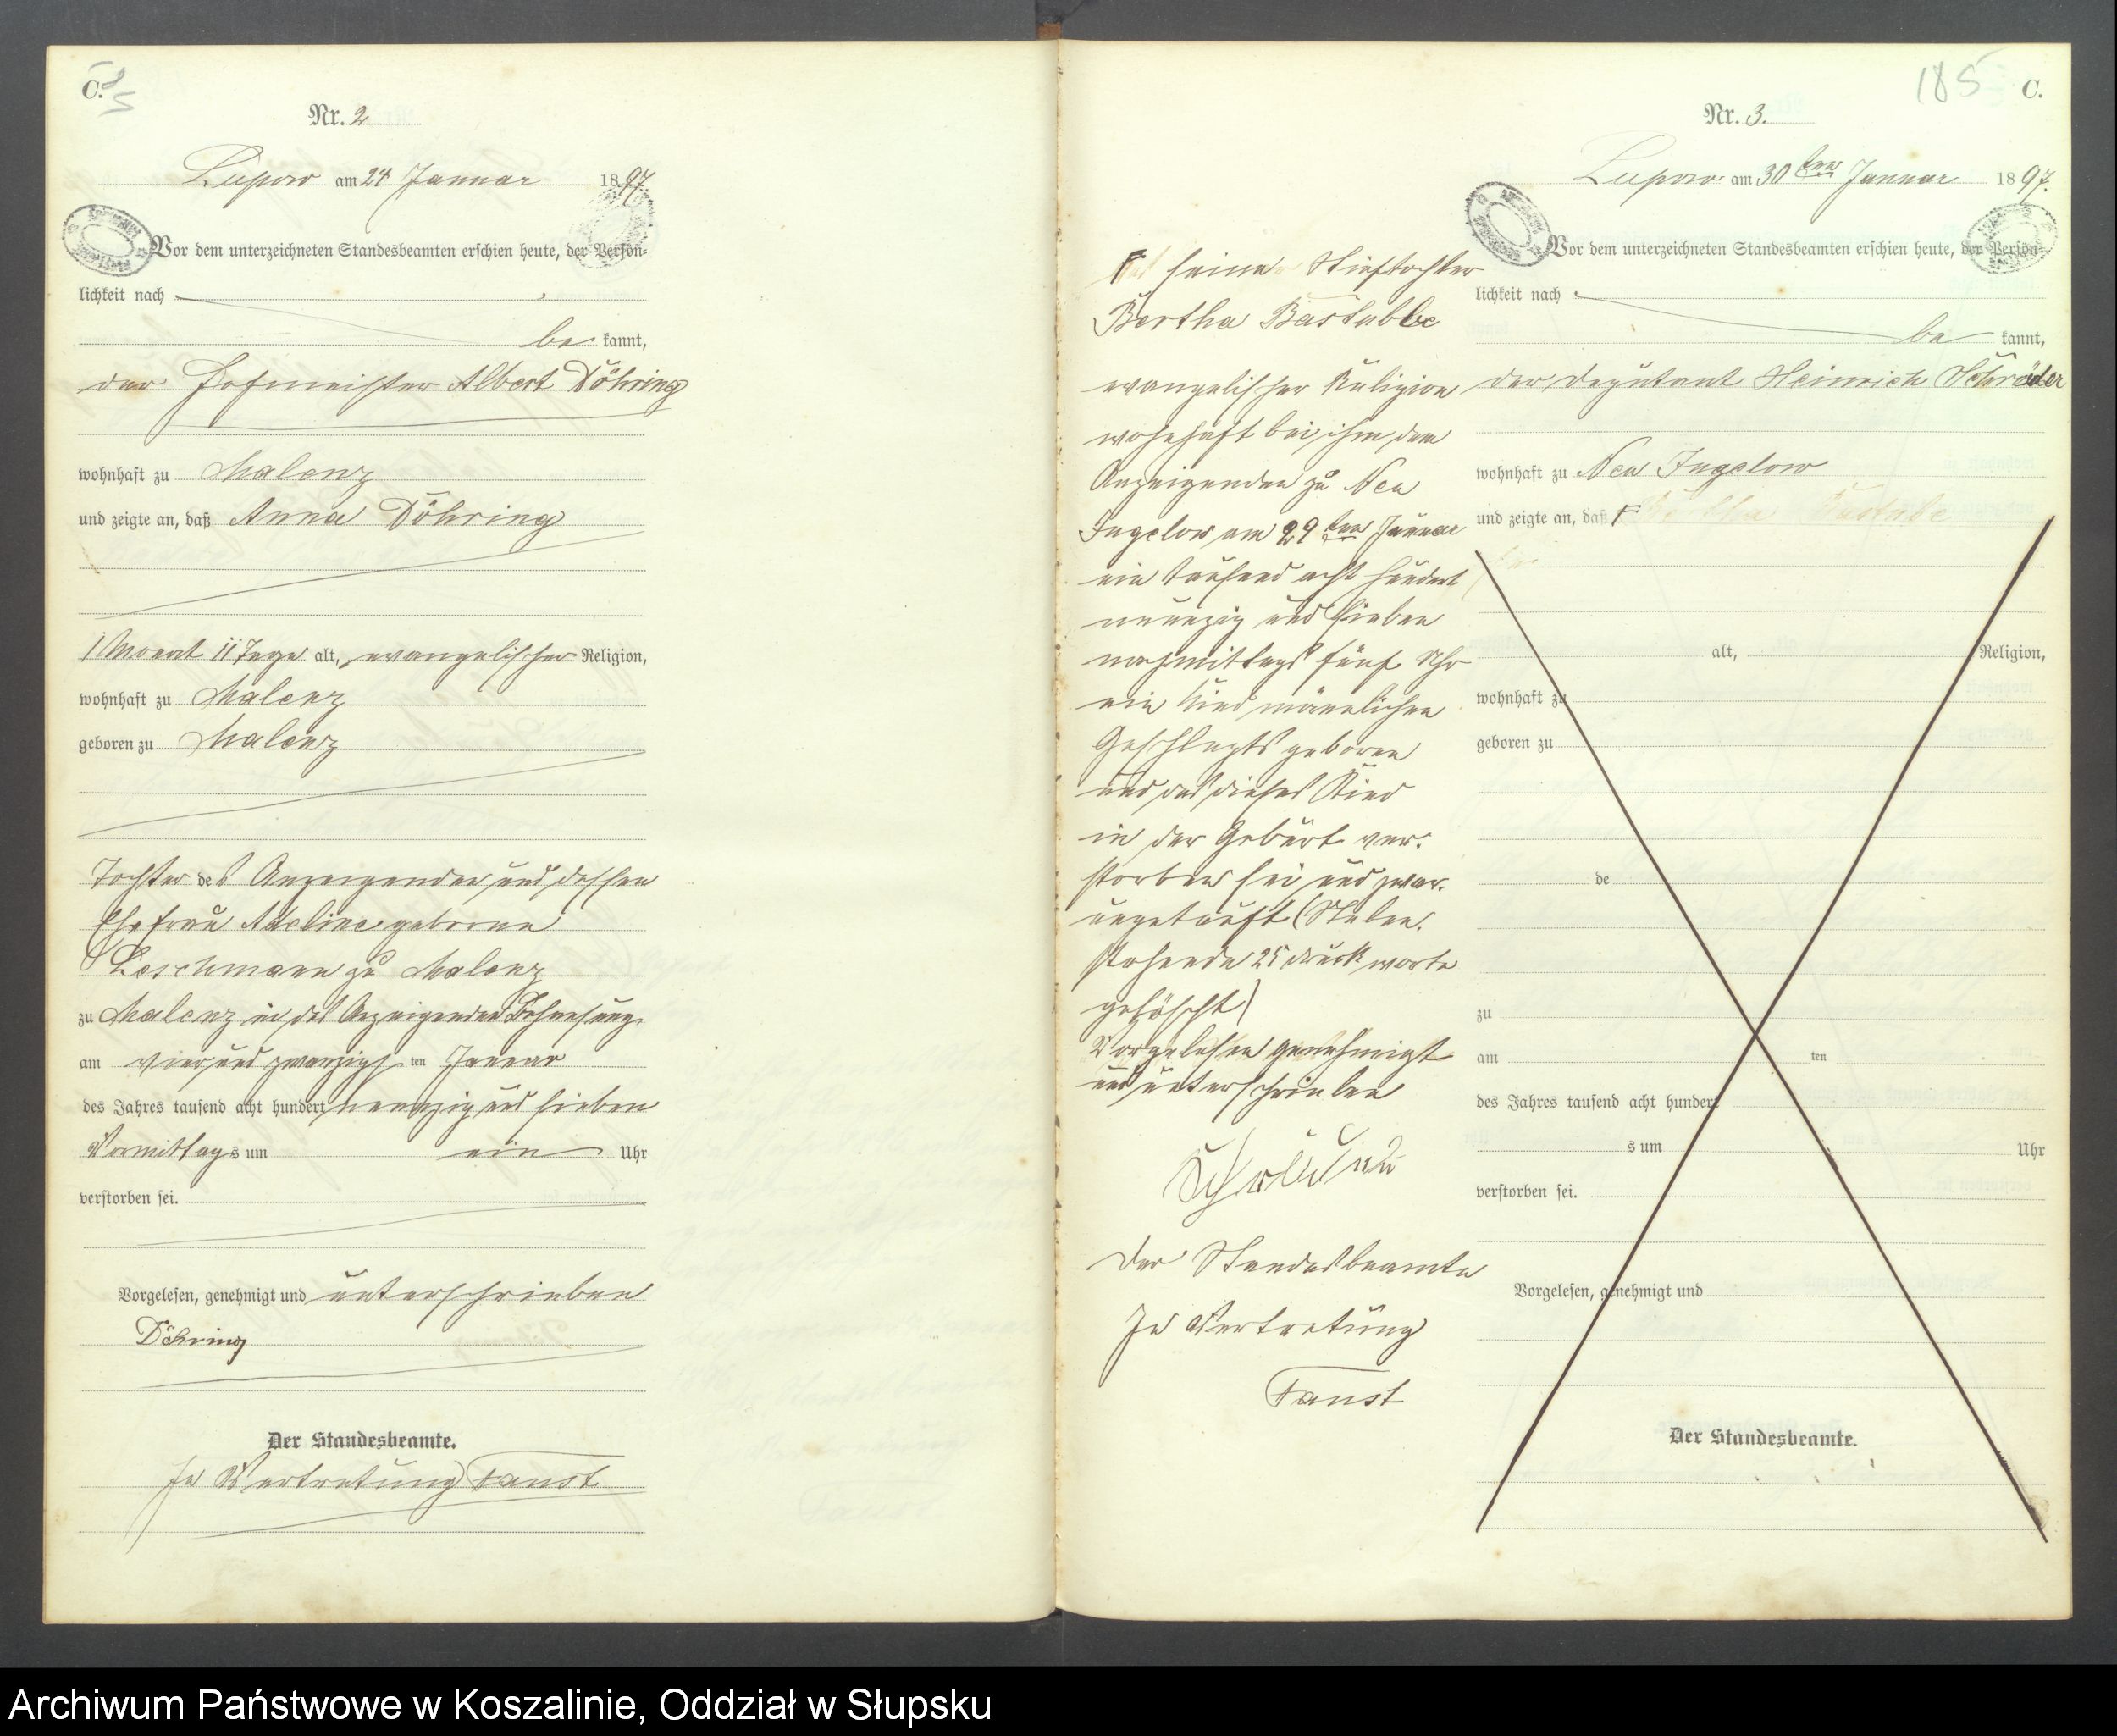 C.
Nr. 2
Lupow am 24 Januar 1897.
Vor dem unterzeichneten Standesbeamten erschien heute, der Persön-
lichkeit nach
be kannt,
der Hofmeister Albert Döhring
wohnhaft zu Malenz
und zeigte an, daß Anna Döhring
1 Monat 11 Tage alt, evangelischer Religion,
wohnhaft zu Malenz
geboren zu Malenz
Tochter des Anzeigenden und dessen
Ehefrau Adeline geborene
Leschmann zu Malenz
zu Malenz in des Anzeigenden Behausung
am vier und zwanzigsten Januar
des Jahres tausend acht hundert neunzig und sieben
Vormittags um ein Uhr
verstorben sei.
Vorgelesen, genehmigt und unterschrieben
Döhring
Der Standesbeamte.
In Vertretung Faust
185 C.
Nr. 3.
Lupow am 30ten Januar 1897.
Vor dem unterzeichneten Standesbeamten erschien heute, der Persön-
lichkeit nach
be kannt,
der Deputant Heinrich Schröder
wohnhaft zu Neu Jugelow
und zeigte an, daß F
alt, Religion,
wohnhaft zu
geboren zu
de
zu
am ten
des Jahres tausend acht hundert
s um Uhr
verstorben sei.
Vorgelesen, genehmigt und
Der Standesbeamte.
F seine Stieftochter
Bertha Bastubbe
evangelischer Religion
wohnhaft bei ihm dem
Anzeigenden zu Neu
Jugelow am 29ten Januar
ein tausend acht hundert
neunzig und sieben
nachmittags fünf Uhr
ein Kind männlichen
Geschlechts geboren
und das dieses Kind
in der Geburt ver-
storben sei und zwar
ungetauft (
stehende 25 Druckworte
gelöscht)
Vorgelesen genehmigt
und unterschrieben
Schröder
Der Standesbeamte
In Vertretung
Faust
Archiwum Państwowe w Koszalinie, Oddział w Słupsku